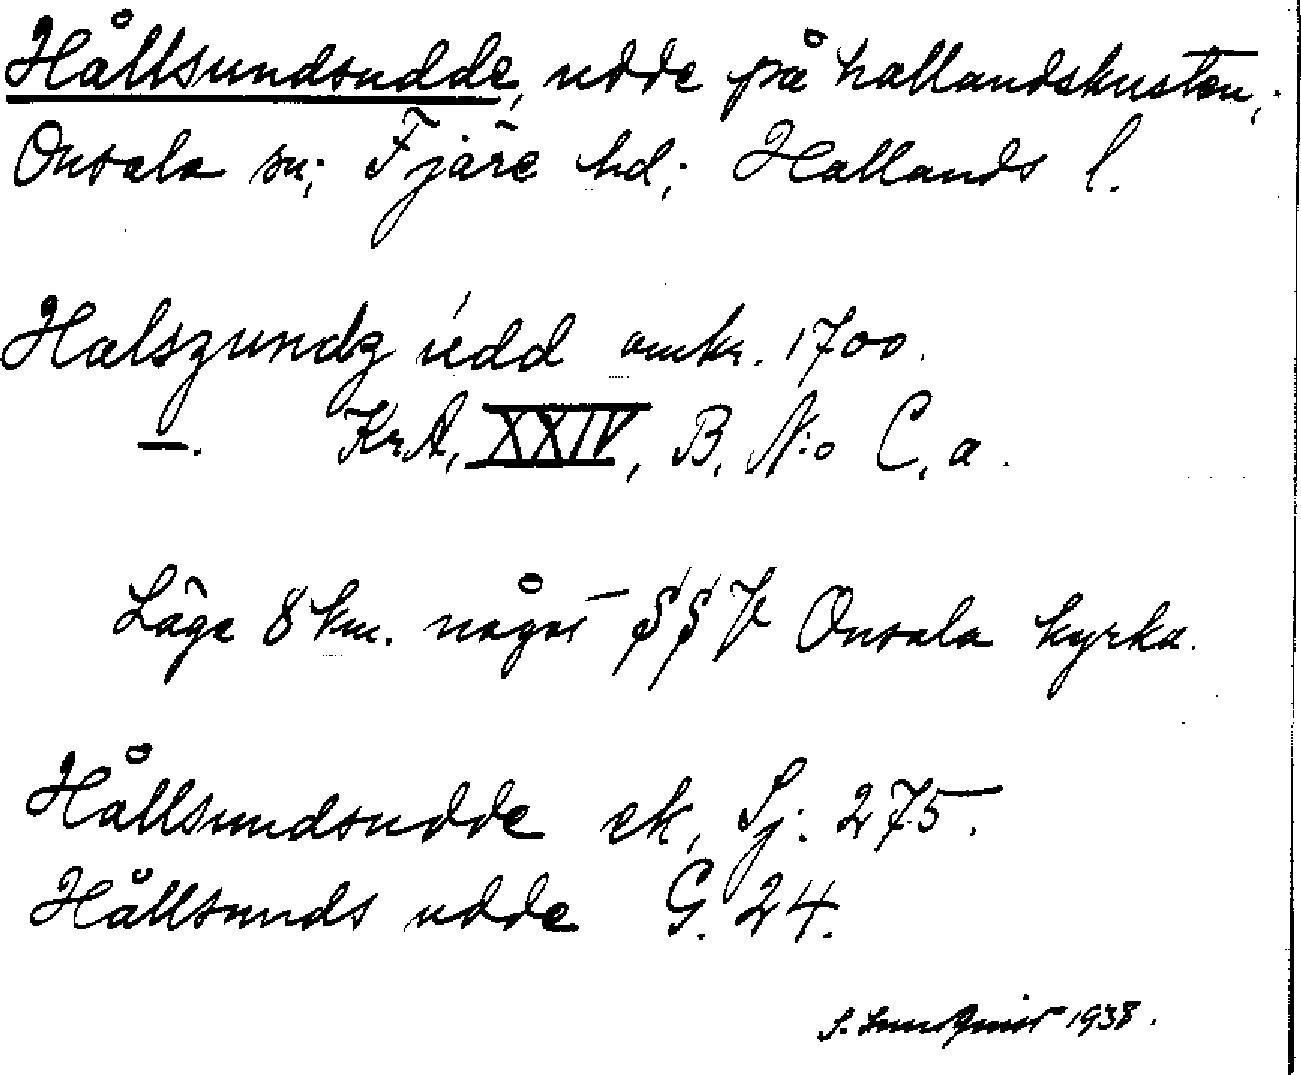 Hållsundsudde, udde på hallandskusten,
Onsala sn; Fjäre hd; Hallands l.
Halszundz údd omkr. 1700.
—. KrA, XXIV, B. N:o C, a.
Läge 8 km. något SSV Onsala kyrka.
Hållsundsudde ek, Sj. 275.
Hållsunds udde G. 24.
S. 1938.